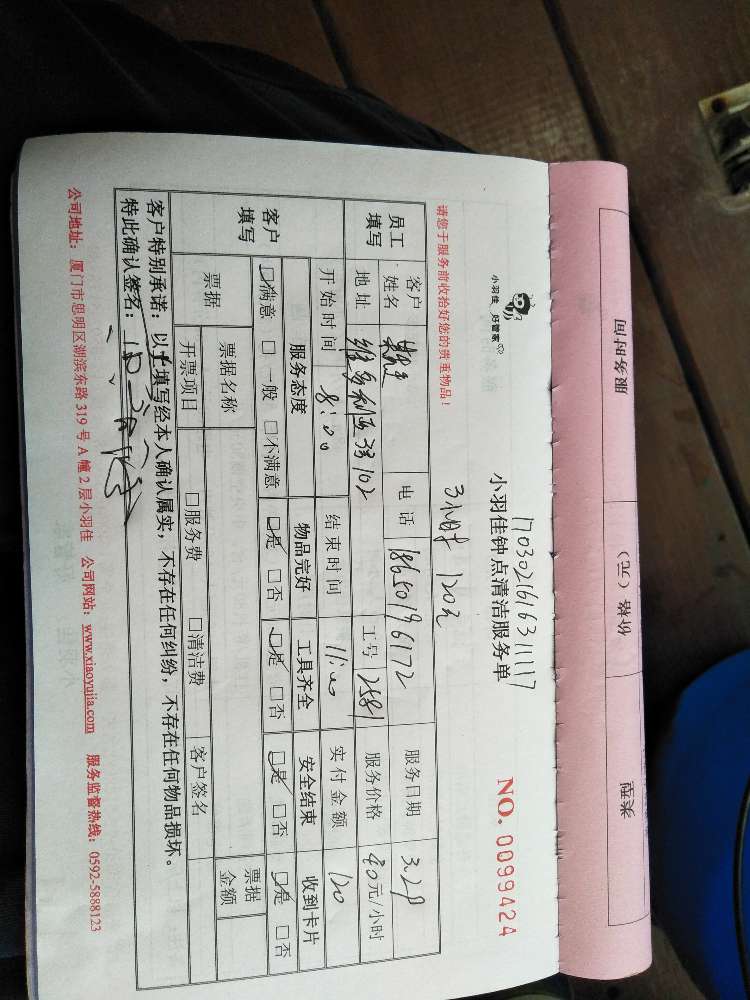 小羽佳 好管家
170302161631117
小羽佳钟点清洁服务单
NO. 0099424
请您于服务前收拾好您的贵重物品！
3小时 120元
员工填写
客户姓名
电话 18650196172
服务日期 3.29
地址 维多利亚3号102
工号 2581
服务价格 40元/小时
开始时间 8:00
结束时间 11:00
实付金额 120
客户填写
服务态度 物品完好 工具齐全 安全结束 收到卡片
☑满意 □一般 □不满意 ☑是 □否 ☑是 □否 ☑是 □否 ☑是 □否
票据
票据名称
票据金额
开票项目 □服务费 □清洁费
客户签名
客户特别承诺：以上填写经本人确认属实，不存在任何纠纷，不存在任何物品损坏。
特此确认签名：
公司地址：厦门市思明区湖滨东路319号A幢2层小羽佳 公司网站：www.xiaoyujia.com 服务监督热线：0592-5888123
服务时间
价格（元）
类型